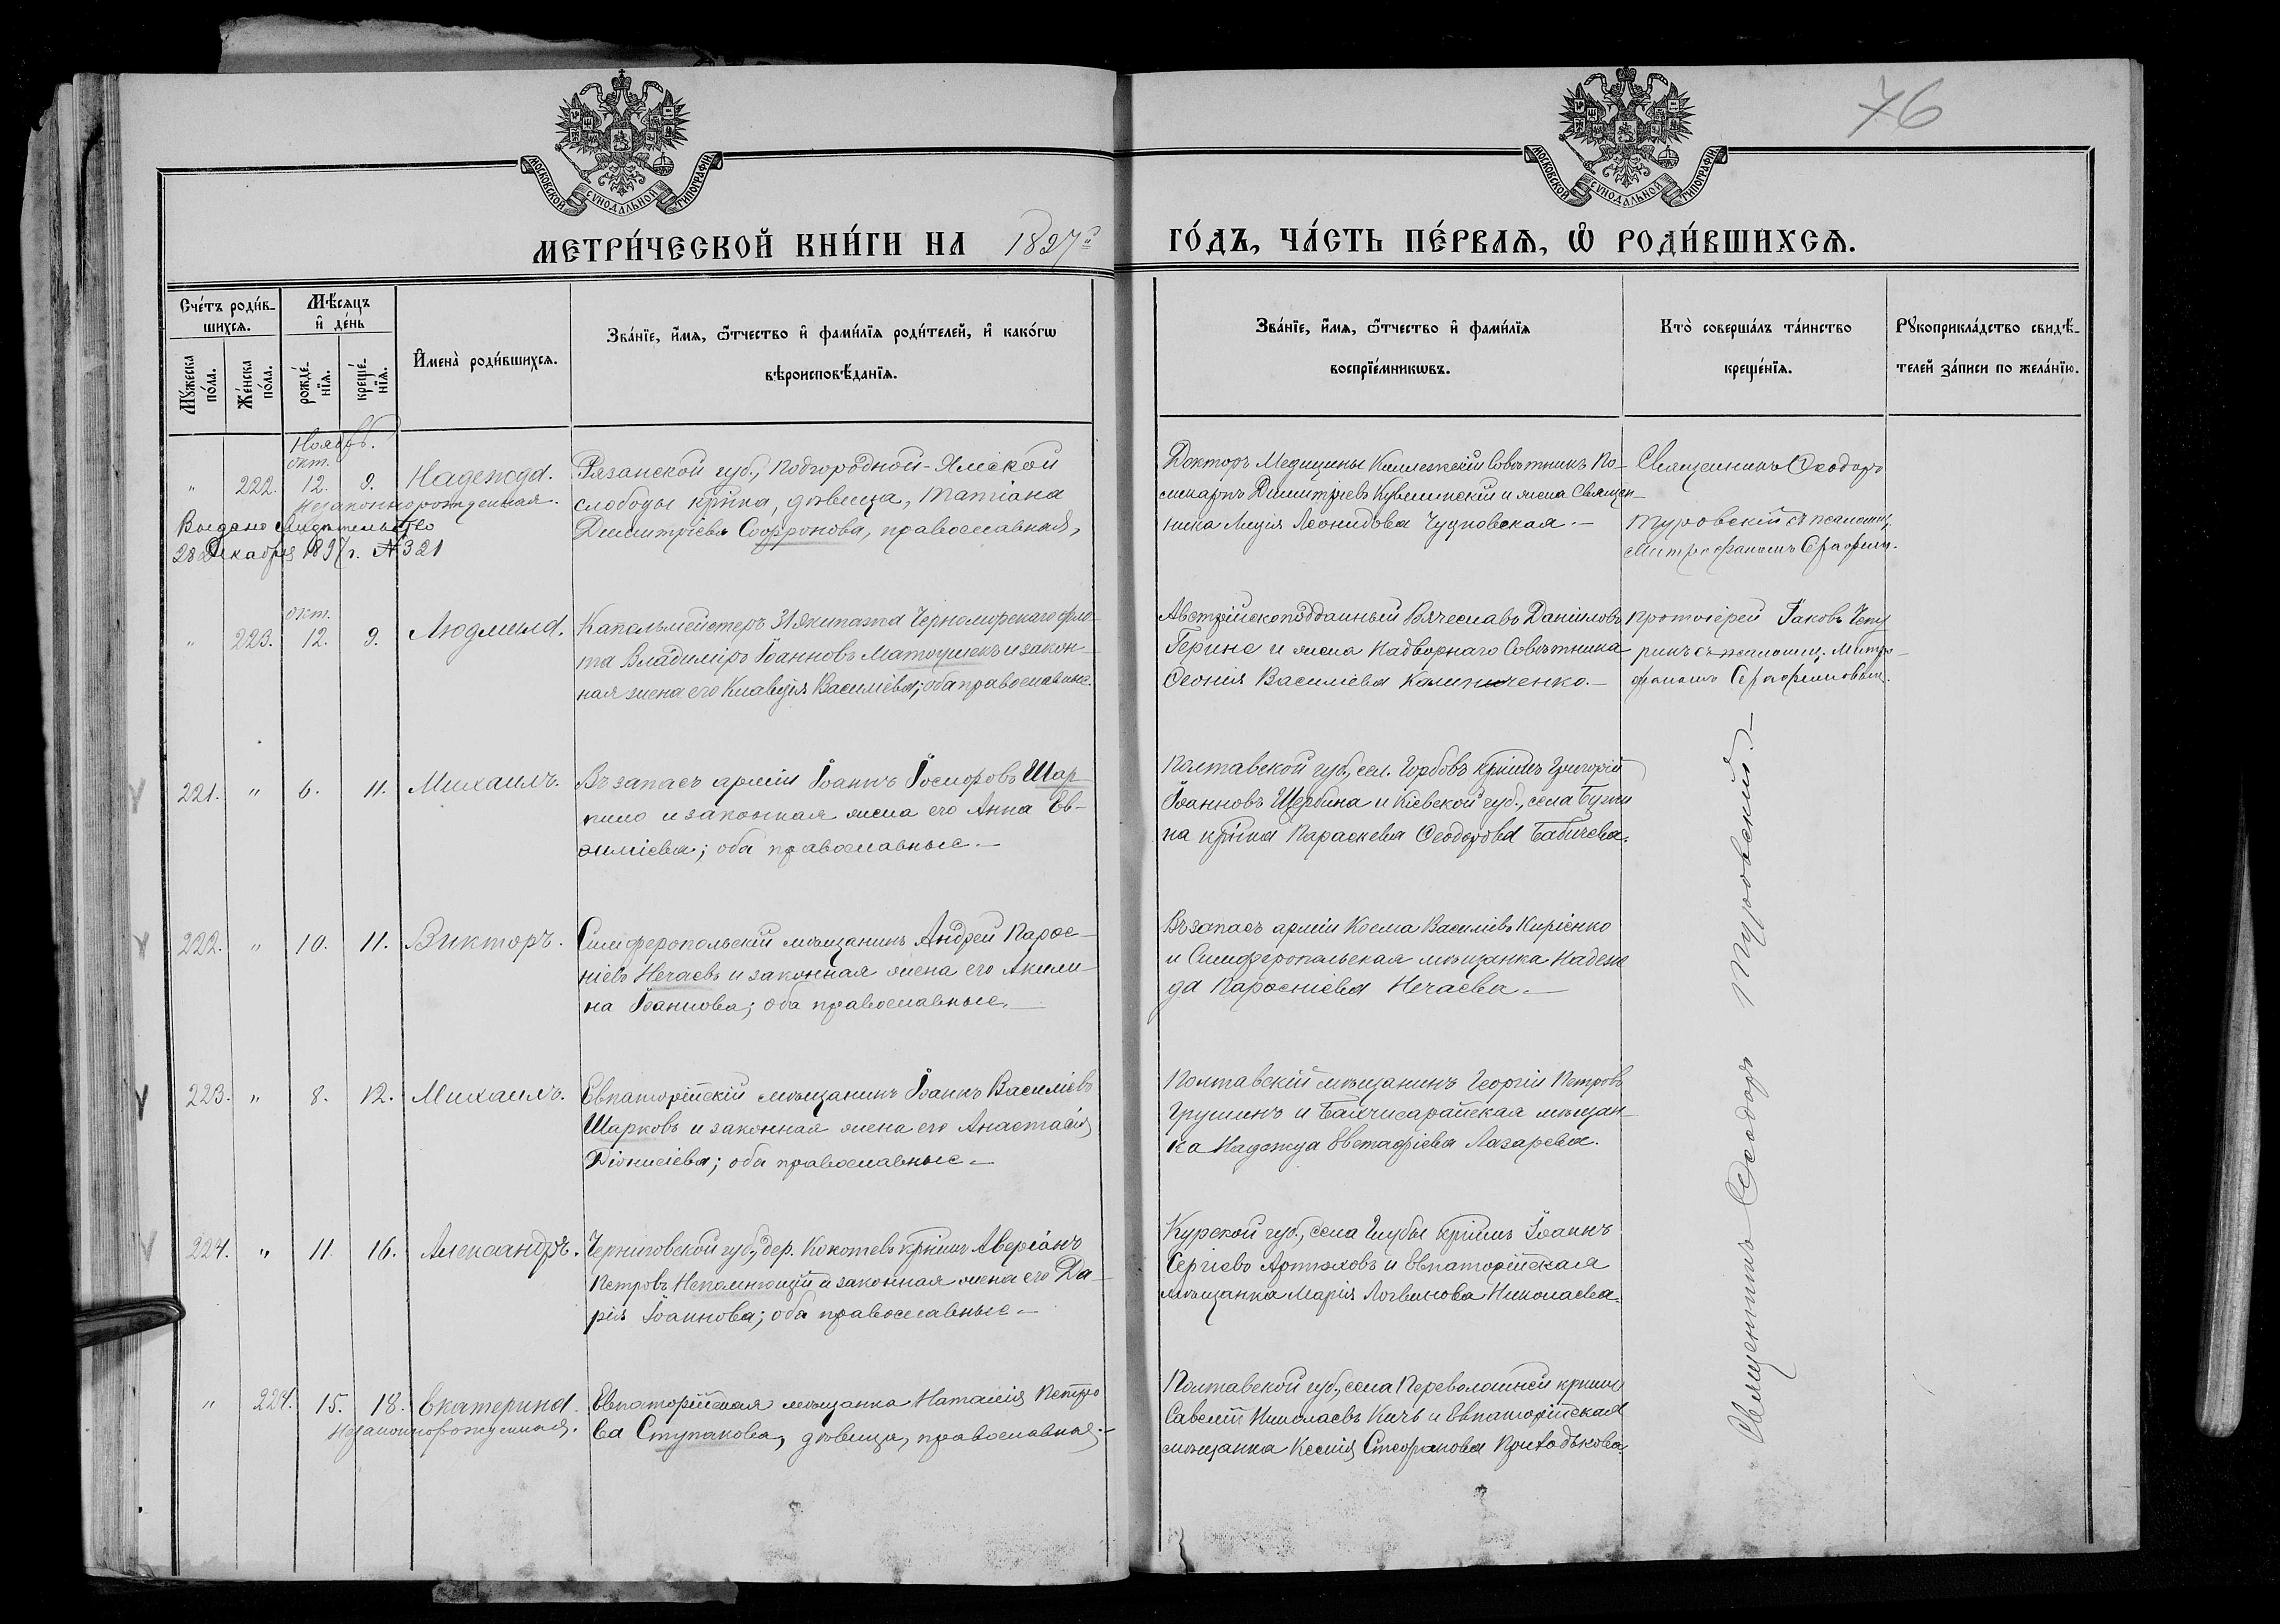 76
МОСКОВСКОЙ СѴНОДАЛЬНОЙ ТИПОГРАФІИ
МОСКОВСКОЙ СѴНОДАЛЬНОЙ ТИПОГРАФІИ
МЕТРИ́ЧЕСКОЙ КНИ́ГИ НА 1897й ГО́ДЪ, ЧА́СТЬ ПЕ́РВАѦ, Ѡ҆ РОДИ́ВШИХСѦ.
Сче́тъ роди́в-
шихсѧ.
Мꙋ́жеска по́ла.
Же́нска по́ла.
Мѣ́сѧцъ
и҆ де́нь
рожде́-
нїѧ.
креще́-
нїѧ.
И҆мена̀ роди́вшихсѧ.
Зва́нїе, и҆́мѧ, ѻ҆́тчество и҆ фами́лїѧ роди́телей, и҆ како́гѡ
вѣроисповѣ́данїѧ.
Зва́нїе, и҆́мѧ, ѻ҆́тчество и҆ фами́лїѧ
воспрїе́мникѡвъ.
Кто̀ соверша́лъ та́инство
креще́нїѧ.
Рꙋкоприкла́дство свидѣ́-
телей за́писи по жела́нїю.
Ноябрь.
окт.
" 222. 12. 9. Надежда.
Незаконнорожденная.
Выдано свидѣтельство
28 Декабря 1897 г. № 321
Рязанской губ., Подгородной-Ямской
слободы кр҃нка, дѣвица, Татіана
Димитріева Софронова, православная,
Докторъ Медицины Коллежскій Совѣтникъ По-
ликарпъ Димитріевъ и жена Священ-
ника Лидія Леонидова Чудновская.-
Священникъ Ѳеодоръ
Туровскій съ псаломщ.
Митрофаномъ Серафим.
окт.
" 223. 12. 9. Людмила.
Капельмейстеръ 31 Экипажа Черноморскаго фло-
та Владиміръ Іоанновъ Матоушекъ и закон-
ная жена его Клавдія Василіева; оба православные.
Австрійскоподданный Вячеславъ Даніиловъ
Геринс и жена Надворнаго Совѣтника
Ѳеонія Василіева Калиниченко.-
Протоіерей Іаковъ Чепу
ринъ съ псаломщ. Митро-
фаномъ Серафимовым.
221. " 6. 11. Михаилъ.
Въ запасѣ арміи Іоаннъ Іосифовъ Шар
пило и законная жена его Анна Ев-
ѳиміева; оба православные.-
Полтавской губ., сел. Горбовъ кр҃нинъ Григорій
Іоанновъ Щербина и Кіевской губ., села
на кр҃нка Параскева Ѳеодорова Бабичева.
222. " 10. 11. Викторъ.
Симферопольскій мѣщанинъ Андрей Парѳе-
ніевъ Нечаевъ и законная жена его Акили-
на Іоаннова; оба православные.-
Въ запасѣ арміи Косма Василіевъ Кирiенко
и Симферопольская мѣщанка Надеж
да Парѳеніева Нечаева.-
223. " 8. 12. Михаилъ.
Евпаторійскій мѣщанинъ Іоаннъ Василіевъ
Шарковъ и законная жена его Анастасія
Діонисіева; оба православные.-
Полтавскій мѣщанинъ Георгій Петровъ
Грушинъ и Бахчисарайская мѣщан-
ка Надежда Евстафіева Лазарева.
224. " 11. 16. Александръ.
Черниговской губ., дер. Кокотевъ кр҃нинъ Аверіанъ
Петровъ Непомнющій и законная жена его Да-
рія Іоаннова; оба православные.-
Курской губ., села Глубы кр҃нинъ Іоаннъ
Сергіевъ Артюховъ и Евпаторійская
мѣщанка Марія Логвинова Николаева.
" 224. 15. 18. Екатерина.
Незаконнорожденная.
Евпаторійская мѣщанка Наталія Петро
ва Ступакова, дѣвица, православная.-
Полтавской губ., села Переволочней кр҃нинъ
Савелій Николаевъ Кичь и Евпаторійская
мѣщанка Ксенія Стефанова Приходькова.
Священникъ Ѳеодоръ Туровскій.-